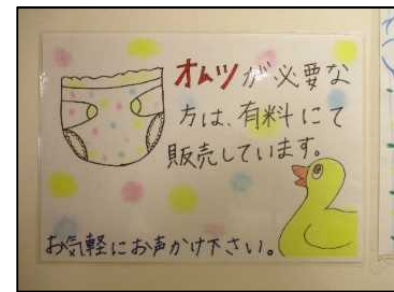 オムツが必要な
方は、有料にて
販売しています。
お気軽にお声かけ下さい。